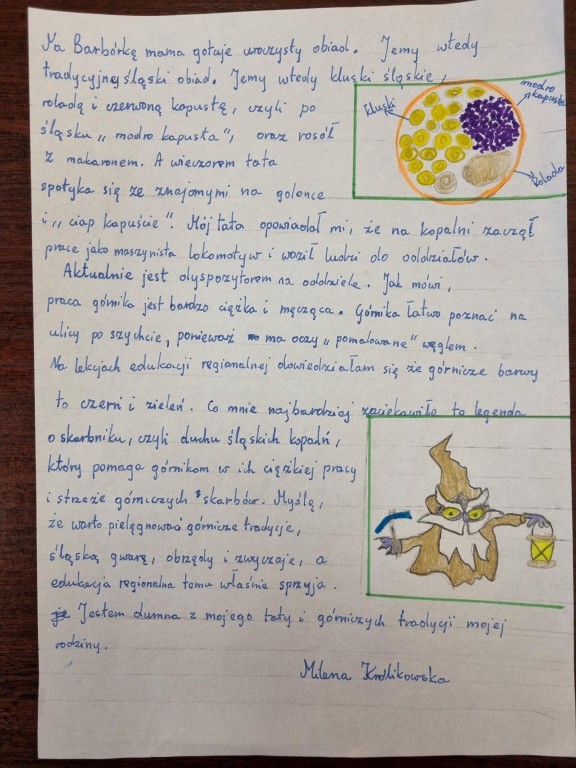 Na Barbórkę mama gotuje uroczysty obiad. Jemy wtedy
tradycyjny śląski obiad. Jemy wtedy kluski śląskie,
roladę i czerwoną kapustę, czyli po
śląsku „modro kapusta", oraz rosół
z makaronem. A wieczorem tata
spotyka się ze znajomymi na golonce
i „ciap kapuście". Mój tata opowiadał mi, że na kopalni zaczął
prace jako maszynista lokomotyw i woził ludzi do oddziałów.
Aktualnie jest dyspozytorem na oddziele. Jak mówi,
praca górnika jest bardzo ciężka i męcząca. Górnika łatwo poznać na
ulicy po szychcie, ponieważ ma oczy „pomalowane" węglem.
Na lekcjach edukacji regionalnej dowiedziałam się że górnicze barwy
to czerń i zieleń. Co mnie najbardziej zaciekawiło to legenda
o skarbniku, czyli duchu śląskich kopalń,
który pomaga górnikom w ich ciężkiej pracy
i strzeże górniczych skarbów. Myślę,
że warto pielęgnować górnicze tradycje,
śląską gwarę, obrzędy i zwyczaje, a
edukacja regionalna temu właśnie sprzyja.
Jestem dumna z mojego taty i górniczych tradycji mojej
rodziny.
Milena Królikowska
kluski
modro
kapusta
Rolada